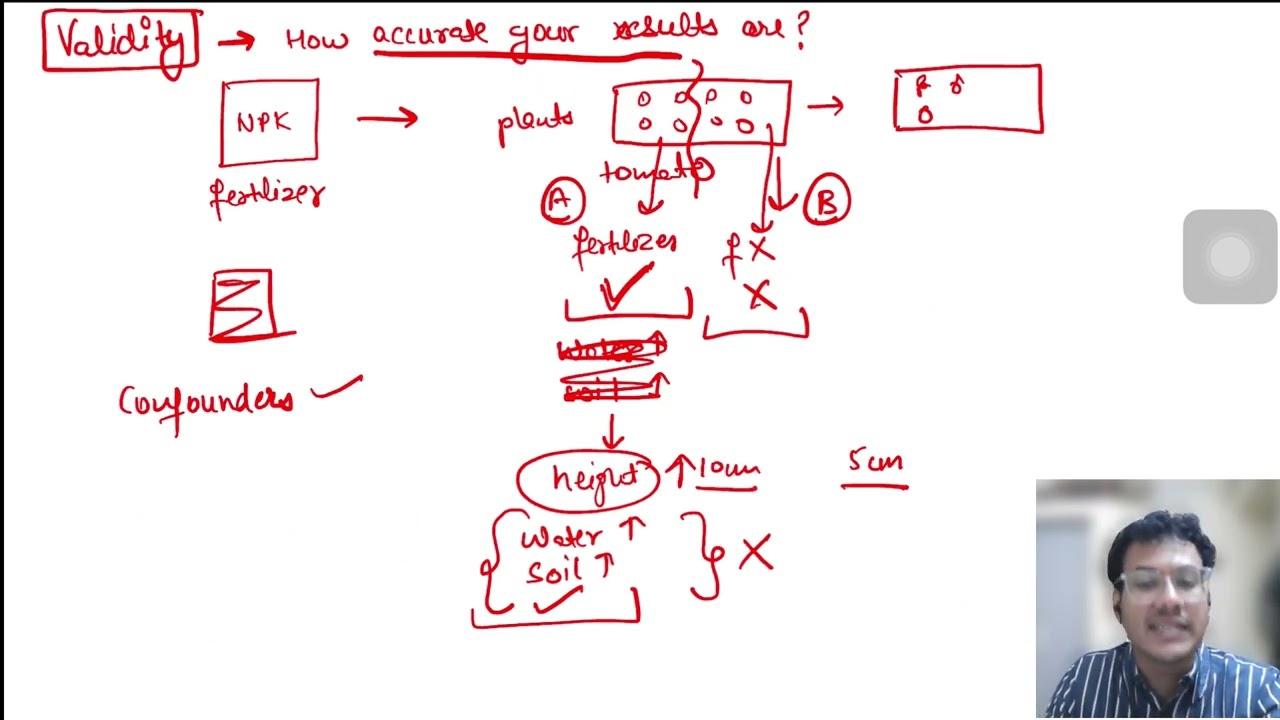 Validity → How accurate your results are?
NPK → plants →
fertilizer
tomato
A B
fertilizer f X
✓ X
water ↑
soil ↑
Confounders ✓
height ↑ 10cm 5cm
Water ↑
Soil ↑ X
✓